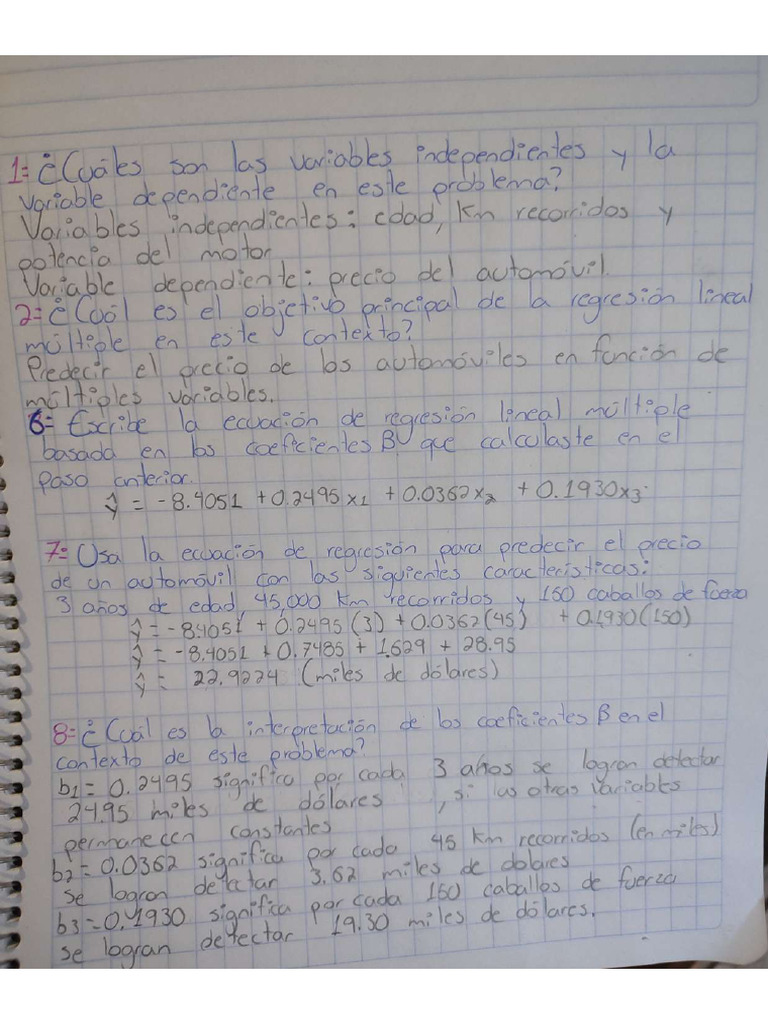 1= ¿Cuáles son las variables independientes y la
variable dependiente en este problema?
Variables independientes: edad, Km recorridos y
potencia del motor
Variable dependiente: precio del automóvil.
2= ¿Cuál es el objetivo principal de la regresión lineal
múltiple en este contexto?
Predecir el precio de los automóviles en función de
múltiples variables.
6= Escribe la ecuación de regresión lineal múltiple
basada en los coeficientes B que calculaste en el
paso anterior.
ŷ = -8.4051 + 0.2495x₁ + 0.0362x₂ + 0.1930x₃
7= Usa la ecuación de regresión para predecir el precio
de un automóvil con las siguientes características:
3 años de edad, 45,000 Km recorridos y 150 caballos de fuerza
ŷ = -8.4051 + 0.2495(3) + 0.0362(45) + 0.1930(150)
ŷ = -8.4051 + 0.7485 + 1.629 + 28.95
ŷ = 22.9224 (miles de dólares)
8= ¿Cuál es la interpretación de los coeficientes B en el
contexto de este problema?
b₁ = 0.2495 significa por cada 3 años se logran detectar
24.95 miles de dólares, si las otras variables
permanecen constantes
b₂ = 0.0362 significa por cada 45 Km recorridos (en miles)
se logran detectar 3.62 miles de dolares
b₃ = 0.1930 significa por cada 150 caballos de fuerza
se logran detectar 19.30 miles de dólares.